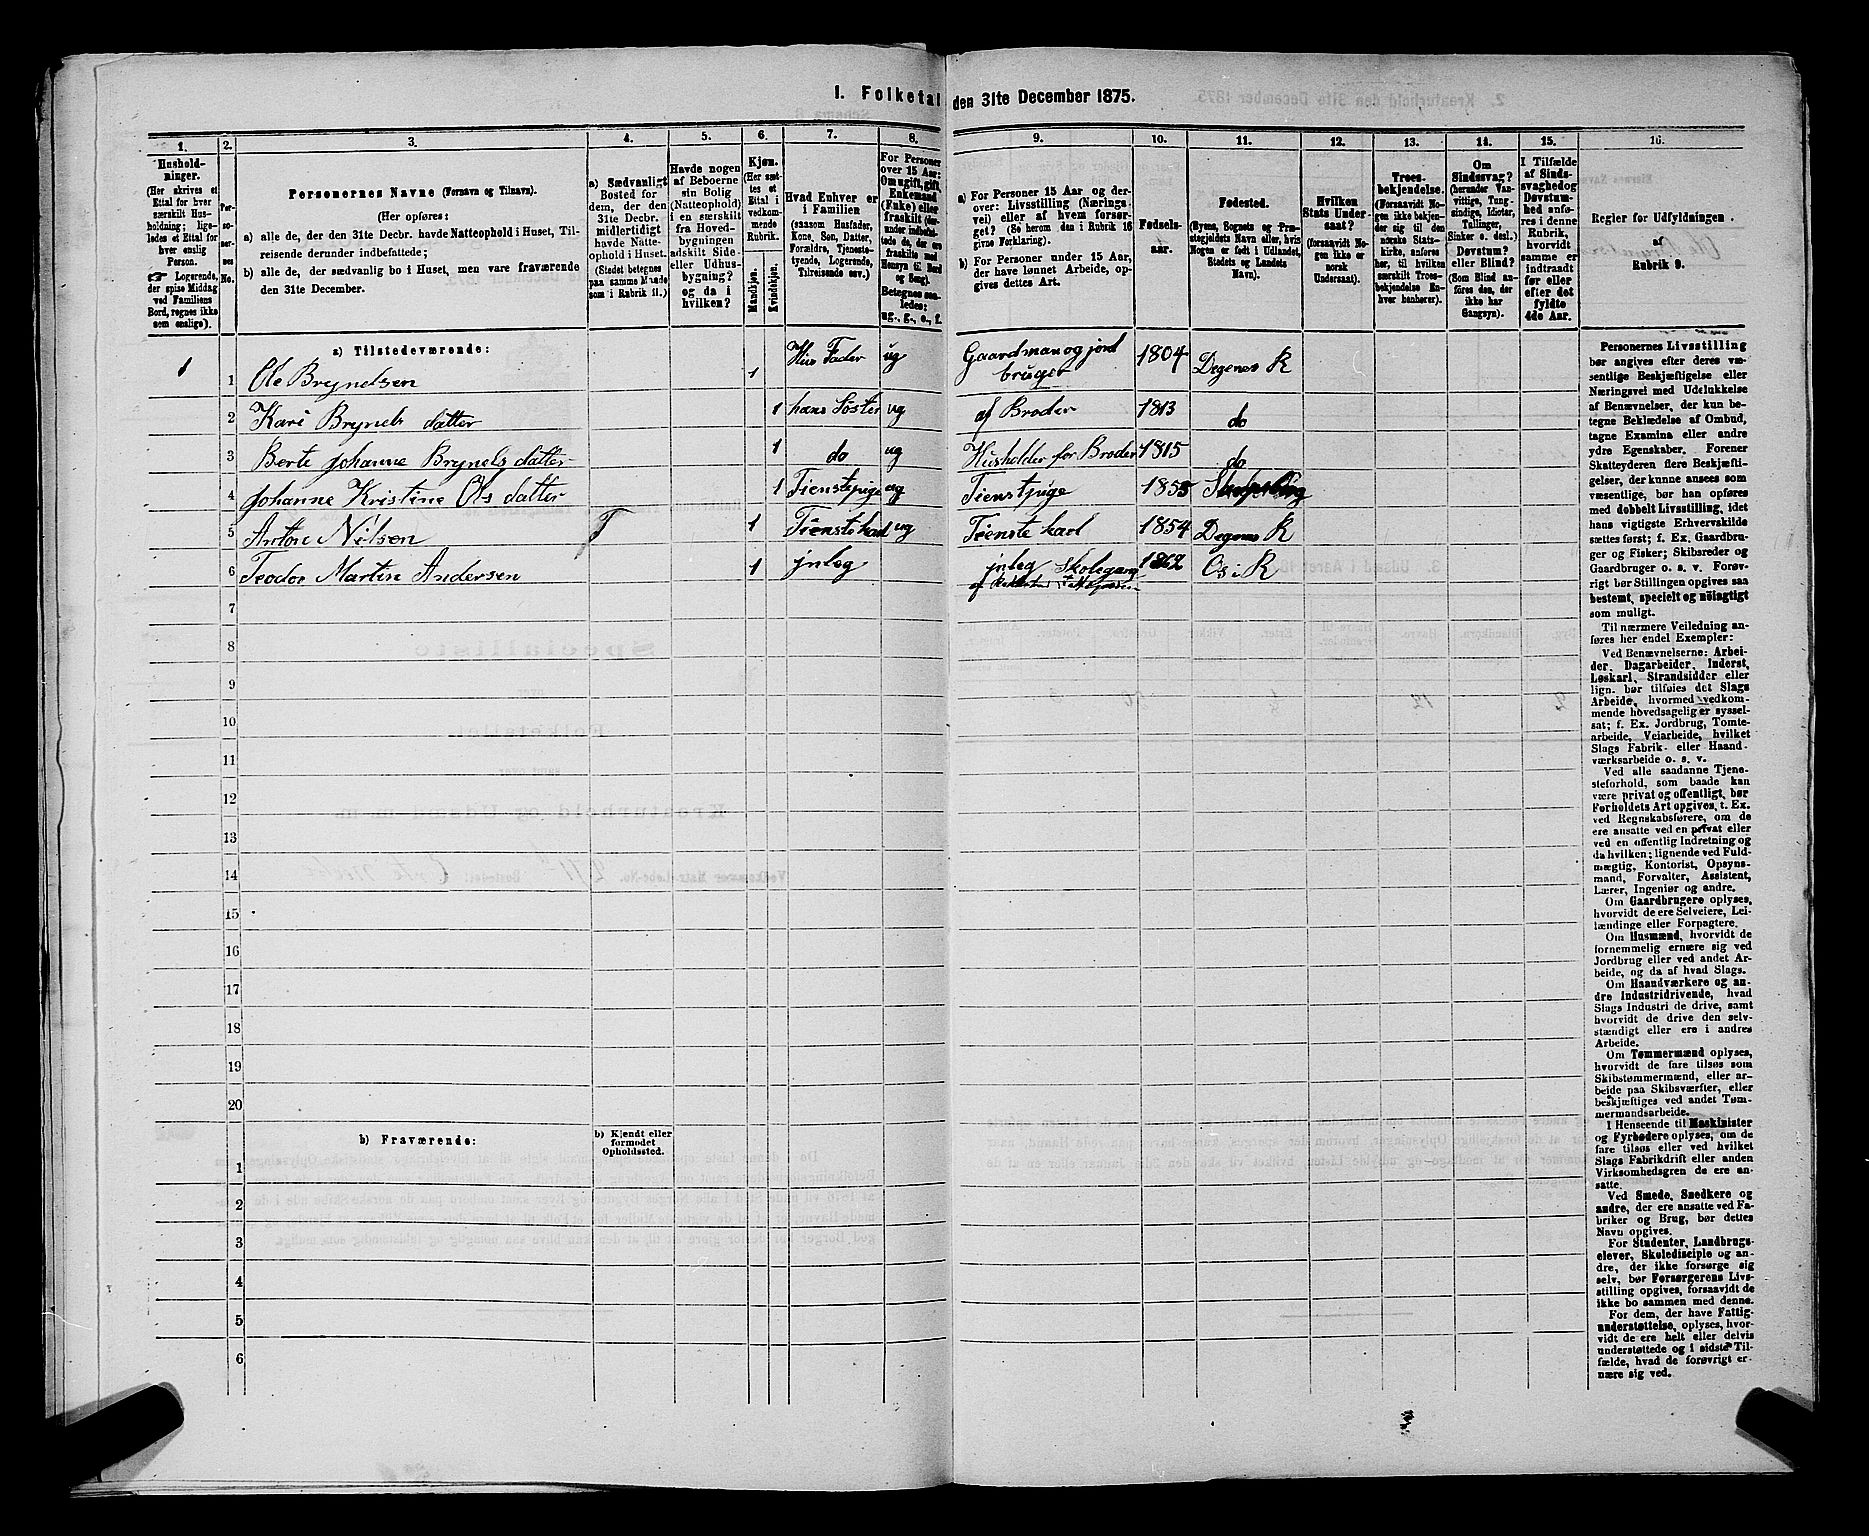 I. Folketal den 31te December 1875.
1. 2. 3. 4. 5. 6. 7. 8. 9. 10. 11. 12. 13. 14. 15. 16.
Hushold-
ninger.
(Her skrives et
Ettal for hver
særskilt Hus-
holdning; lige-
ledes et Ettal for
hver enslig
Person.
☞ Logerende,
der spise Middag
ved Familiens
Bord, regnes ikke
som enslige).
Per-
so-
ner-
nes
No.
Personernes Navne (Fornavn og Tilnavn).
(Her opføres:
a) alle de, der den 31te Decbr. havde Natteophold i Huset, Til-
reisende derunder indbefattede;
b) alle de, der sædvanlig bo i Huset, men vare fraværende
den 31te December.
a) Sædvanligt
Bosted for
dem, der den
31te Decbr.
midlertidigt
havde Natte-
ophold i Huset.
(Stedet betegnes
paa samme Maade
som i Rubrik 11.)
Havde nogen
af Beboerne
sin Bolig
(Natteophold)
i en særskilt
fra Hoved-
bygningen
adskilt Side-
eller Udhus-
bygning?
og da i
hvilken?
Kjøn.
(Her sæt-
tes et
Ettal i
vedkom-
mende
Rubrik.
Mandkjøn.
Kvindekjøn.
Hvad Enhver er
i Familien
(saasom Husfader,
Kone, Søn, Datter,
Forældre, Tjeneste-
tyende, Logerende,
Tilreisende osv.)
For Personer
over 15 Aar:
Om ugift, gift,
Enkemand
(Enke) eller
fraskilt (der-
under indbefat-
tede de, der ere
fraskilte med
Hensyn til Bord
og Seng).
Betegnes saa-
ledes:
ug., g., e., f.
a) For Personer 15 Aar og der-
over: Livsstilling (Nærings-
vei) eller af hvem forsør-
get? (Se herom den i Rubrik 16
givne Forklaring).
b) For Personer under 15 Aar,
der have lønnet Arbeide, op-
gives dettes Art.
Fødsels-
aar.
Fødested.
(Byens, Sognets og Præ-
stegjeldets Navn eller, hvis
Nogen er født i Udlandet,
Stedets og Landets
Navn).
Hvilken
Stats Under-
saat?
(forsaavidt No-
gen ikke er
norsk
Undersaat).
Troes-
bekjendelse.
(Forsaavidt No-
gen ikke bekjen-
der sig til den
norske Stats-
kirke, anføres
her, til hvilken
særskilt Troes-
bekjendelse En-
hver henhører).
Om
Sindssvag?
(herunder Van-
vittige, Tung-
sindige, Idioter,
Tullinger,
Sinker o. desl.)
Døvstum?
eller Blind?
(Som Blind an-
føres den, der
ikke har
Gangsyn).
I Tilfælde
af Sinds-
svaghed og
Døvstum-
hed anfø-
res i denne
Rubrik,
hvorvidt
samme er
indtraadt
før eller
efter det
fyldte
4de Aar.
Regler for Udfyldningen
af
Rubrik 9.
a) Tilstedeværende:
1 1 Ole Brynelsen 1 Hus Fader ug Gaardman og jord
bruger 1804 Degernes K
2 Kari Brynels datter 1 hans Søster ug af Broder 1813 do
3 Berte Johanne Brynels datter 1 do ug Husholder for Broder 1815 do
4 Johanne Kristine Ols datter 1 Tienstepige ug Tienstpige 1855
5 Anton Nilsen T 1 Tienste karl ug Tienste karl 1854 Degernes K
6 Teodor Martin Andersen 1 jnleg jnleg Skolegang 1862 Os i R
af
7
8
9
10
11
12
13
14
15
16
17
18
19
20
b) Fraværende:
b) Kjendt eller
formodet
Opholdssted.
1
2
3
4
5
6
Personernes Livsstilling
bør angives efter deres væ-
sentlige Beskjæftigelse eller
Næringsvei med Udelukkelse
af Benævnelser, der kun be-
tegne Beklædelse af Ombud,
tagne Examina eller andre
ydre Egenskaber. Forener
Skatteyderen flere Beskjæfti-
gelser, der kunne ansees som
væsentlige, bør han opføres
med dobbelt Livsstilling, idet
hans vigtigste Erhvervskilde
sættes først; f. Ex. Gaardbru-
ger og Fisker; Skibsreder og
Gaardbruger o. s. v. Forøv-
rigt bør Stillingen opgives saa
bestemt, specielt og nöiagtigt
som muligt.
Til nærmere Veiledning an-
føres her endel Exempler:
Ved Benævnelserne: Arbei-
der, Dagarbeider, Inderst,
Løskarl, Strandsidder eller
lign. bør tilføies det Slags
Arbeide, hvormed vedkom-
mende hovedsagelig er syssel-
sat; f. Ex. Jordbrug, Tomte-
arbeide, Veiarbeide, hvilket
Slags Fabrik- eller Haand-
værksarbeide o. s. v.
Ved alle saadanne Tjene-
steforhold, som baade kan
være privat og offentligt, bør
Forholdets Art opgives, t. Ex.
ved Regnskabsførere, om de
ere ansatte ved en privat eller
ved en offentlig Indretning og
da hvilken; lignende ved Fuld-
mægtig, Kontorist, Opsyns-
mand, Forvalter, Assistent,
Lærer, Ingeniør og andre.
Om Gaardbrugere oplyses,
hvorvidt de ere Selveiere, Lei-
lændinge eller Forpagtere.
Om Husmænd, hvorvidt de
fornemmelig ernære sig ved
Jordbrug eller ved andet Ar-
beide, og da af hvad Slags.
Om Haandværkere og an-
dre Industridrivende, hvad
Slags Industri de drive, samt
hvorvidt de drive den selv-
stændigt eller ere i andres
Arbeide.
Om Tømmermænd oplyses,
hvorvidt de fare tilsøs som
Skibstømmermænd, eller ar-
beide paa Skibsværfter, eller
beskjæftiges ved andet Tøm-
mermandsarbeide.
I Henseende til Maskinister
og Fyrbødere oplyses, om de
fare tilsøs eller ved hvilket
Slags Fabrikdrift eller anden
Virksomhedsgren de ere an-
satte.
Ved Smede, Snedkere og
andre, der ere ansatte ved Fa-
briker og Brug, bør dettes
Navn opgives.
For Studenter, Landbrugs-
elever, Skoledisciple og an-
dre, der ikke forsørge sig
selv, bør Forsørgerens Livs-
stilling opgives, forsaavidt de
ikke bo sammen med denne.
For dem, der have Fattig-
understøttelse, oplyses, hvor-
vidt de ere helt eller delvis
understøttede og i sidste Til-
fælde, hvad de forøvrigt er-
nære sig ved.